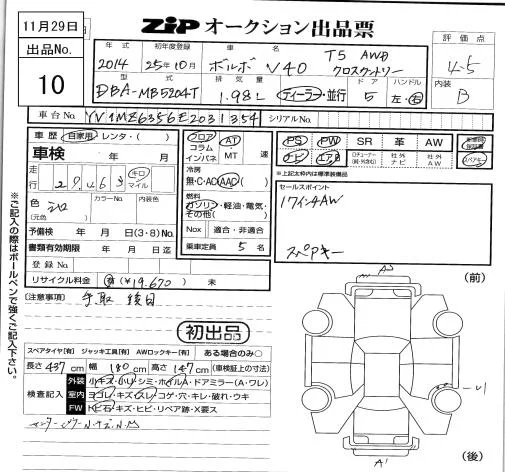 11月29日
出品No.
10
ZIP オークション出品票
年式 初年度登録 車名
2014 25年10月 ボルボ V40 T5 AWD
クロスカントリー
型式 排気量 ドア ハンドル
DBA-MB5204T 1.98L ディーラー・並行 5 左・右
評価点
4.5
内装
B
車台No. YV1MZ6356E2031354 シリアルNo.
車歴 自家用・レンタ・( )
車検 年 月
走行 29,463 キロ マイル
色 シロ カラーNo. 内装色
(元色)
予備検 年 月 日(3・8)No.
書類有効期限 年 月 日迄
登録No.
リサイクル料金 有(¥19,670) 未
フロア コラム インパネ
AT MT 速
冷房
無・C・AC・AAC
燃料
ガソリン・軽油・電気・その他( )
Nox 適合・非適合
乗車定員 5 名
PS PW SR 革 AW
ナビ エアB 社外ナビ 社外AW
スペアキー
※上記太枠内は標準装備品
セールスポイント
17インチAW
スペアキー
[注意事項] 手取
初出品
(前)
スペアタイヤ[有] ジャッキ工具[有] AWロックキー[有] ある場合のみ○
長さ 437cm 幅 180cm 高さ 147cm (車検証上の寸法)
検査記入
外装 小キズ・小リ・シミ・ホイルA・ドアミラー(A・ワレ)
室内 ヨゴレ・キズ・スレ・コゲ・穴・キレ・破れ・ウキ
FW トビ石・キズ・ヒビ・リペア跡・X要ス
A2
U1
A1
(後)
※ご記入の際はボールペンで強くご記入下さい。